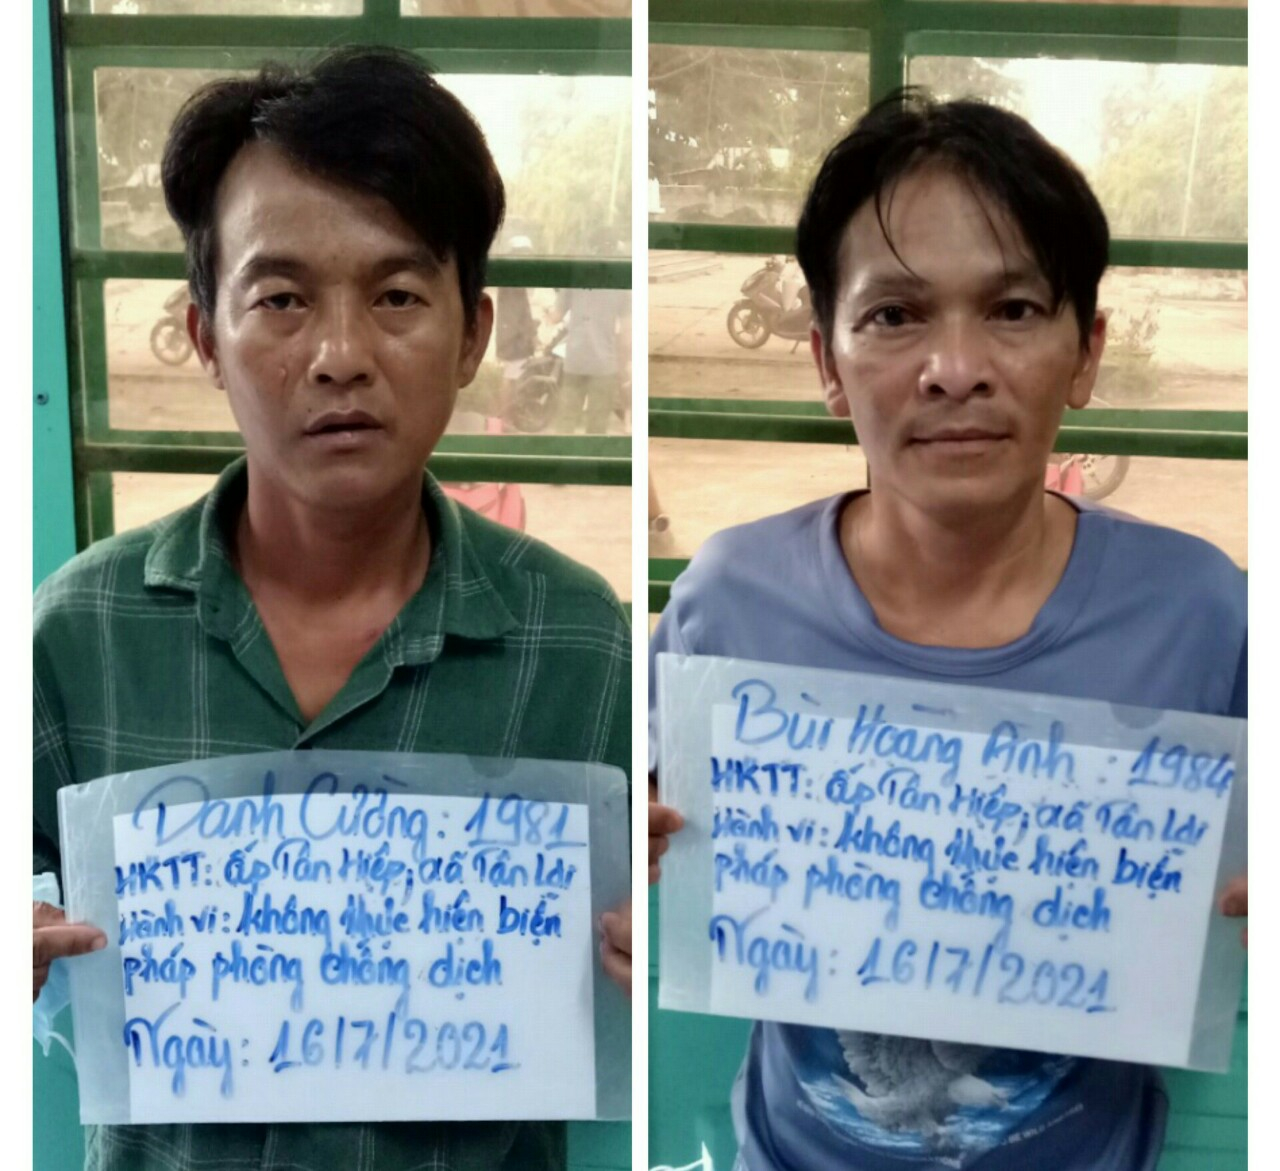 Danh Cường: 1981
HKTT: ấp Tân Hiệp, xã Tân Lợi
Hành vi: không thực hiện biện
pháp phòng chống dịch
Ngày: 16/7/2021
Bùi Hoàng Anh: 1984
HKTT: ấp Tân Hiệp, xã Tân Lợi
Hành vi: không thực hiện biện
pháp phòng chống dịch
Ngày: 16/7/2021